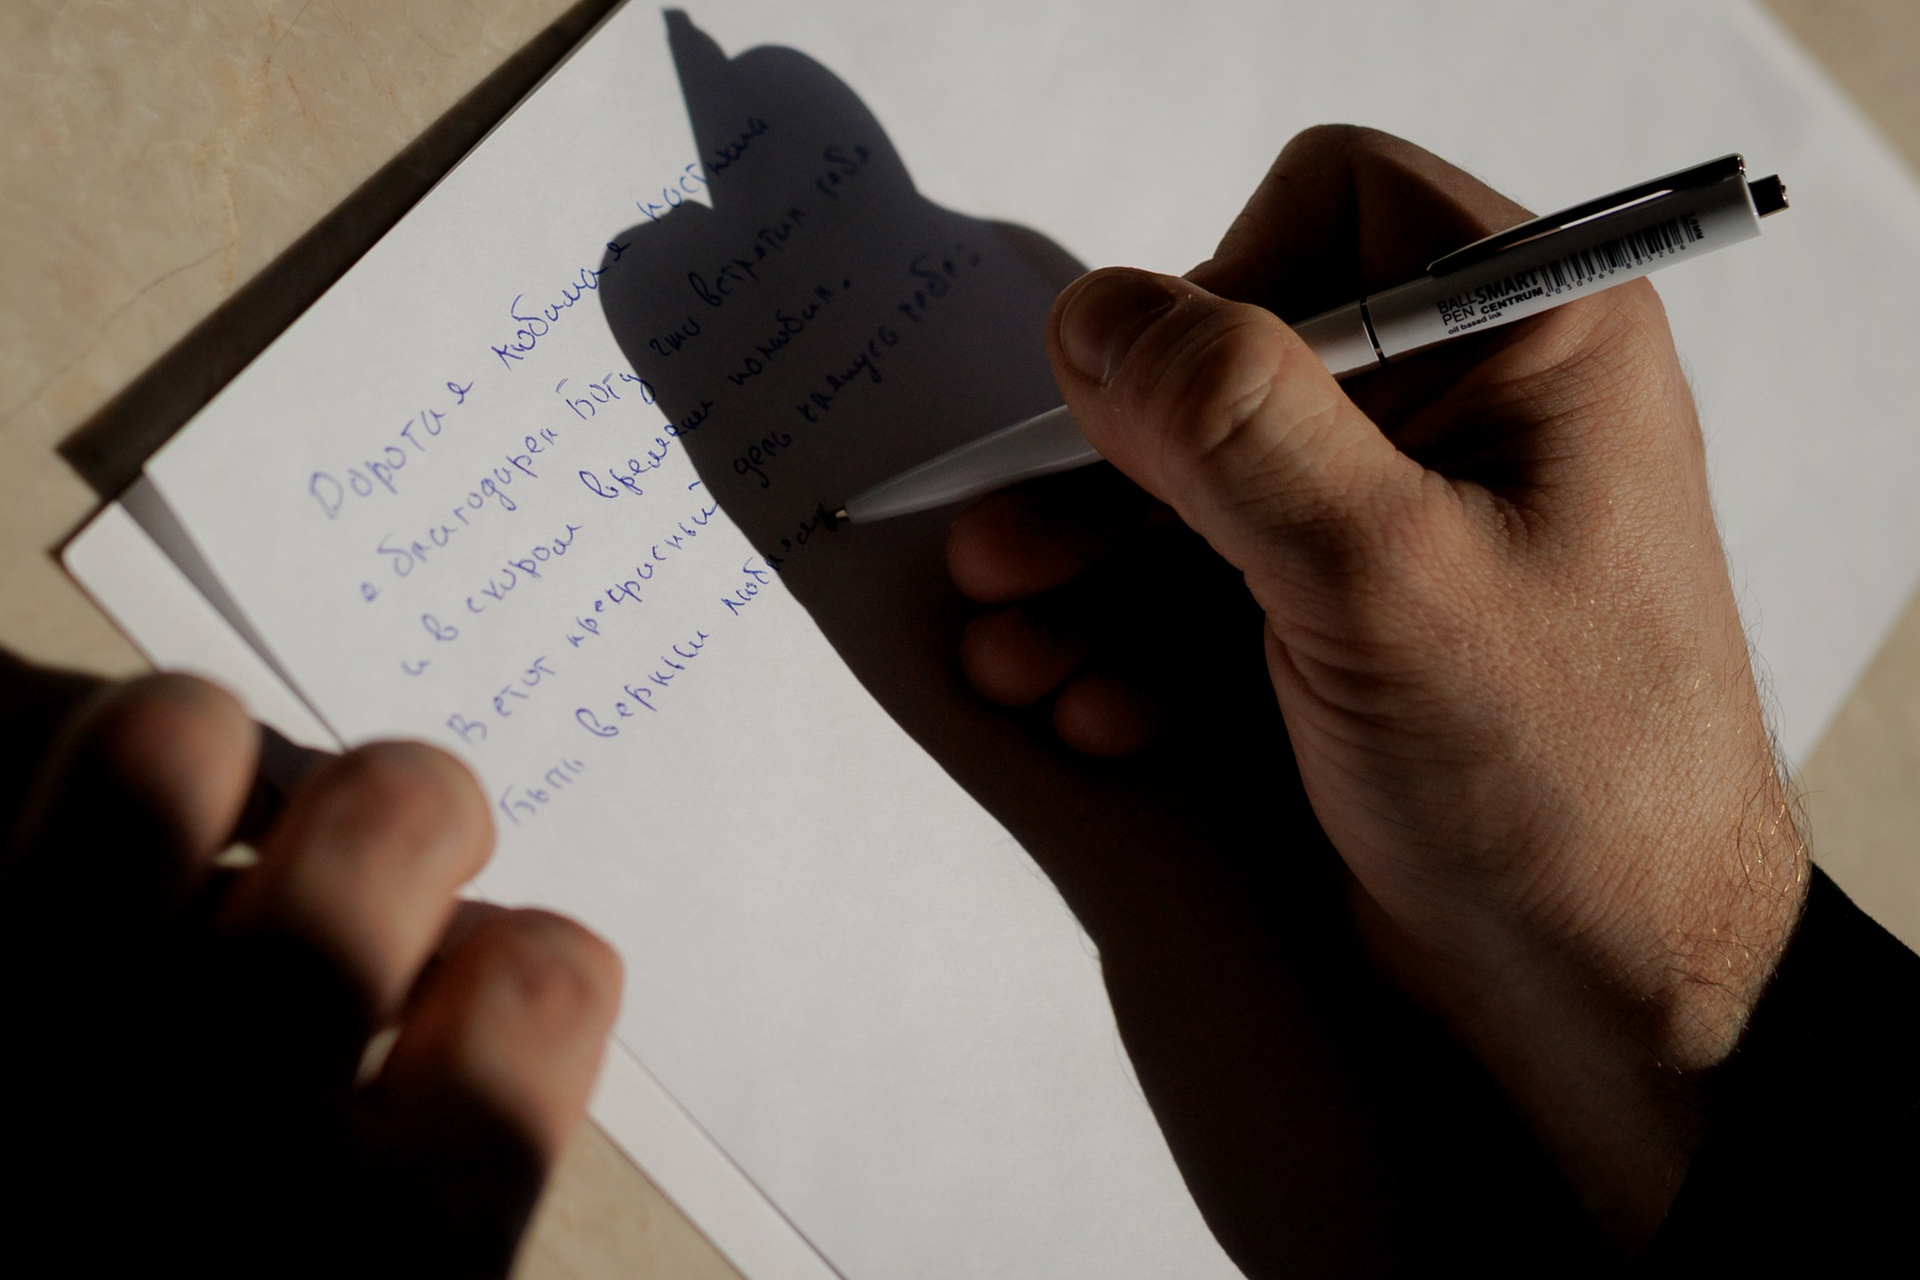 Дорогая любимая Настюша
я благодарен Богу что встретил тебя
и в скором времени полюбил.
В этот прекрасный день клянусь тебе
быть верным
BALL SMART
PEN CENTRUM
oil based ink